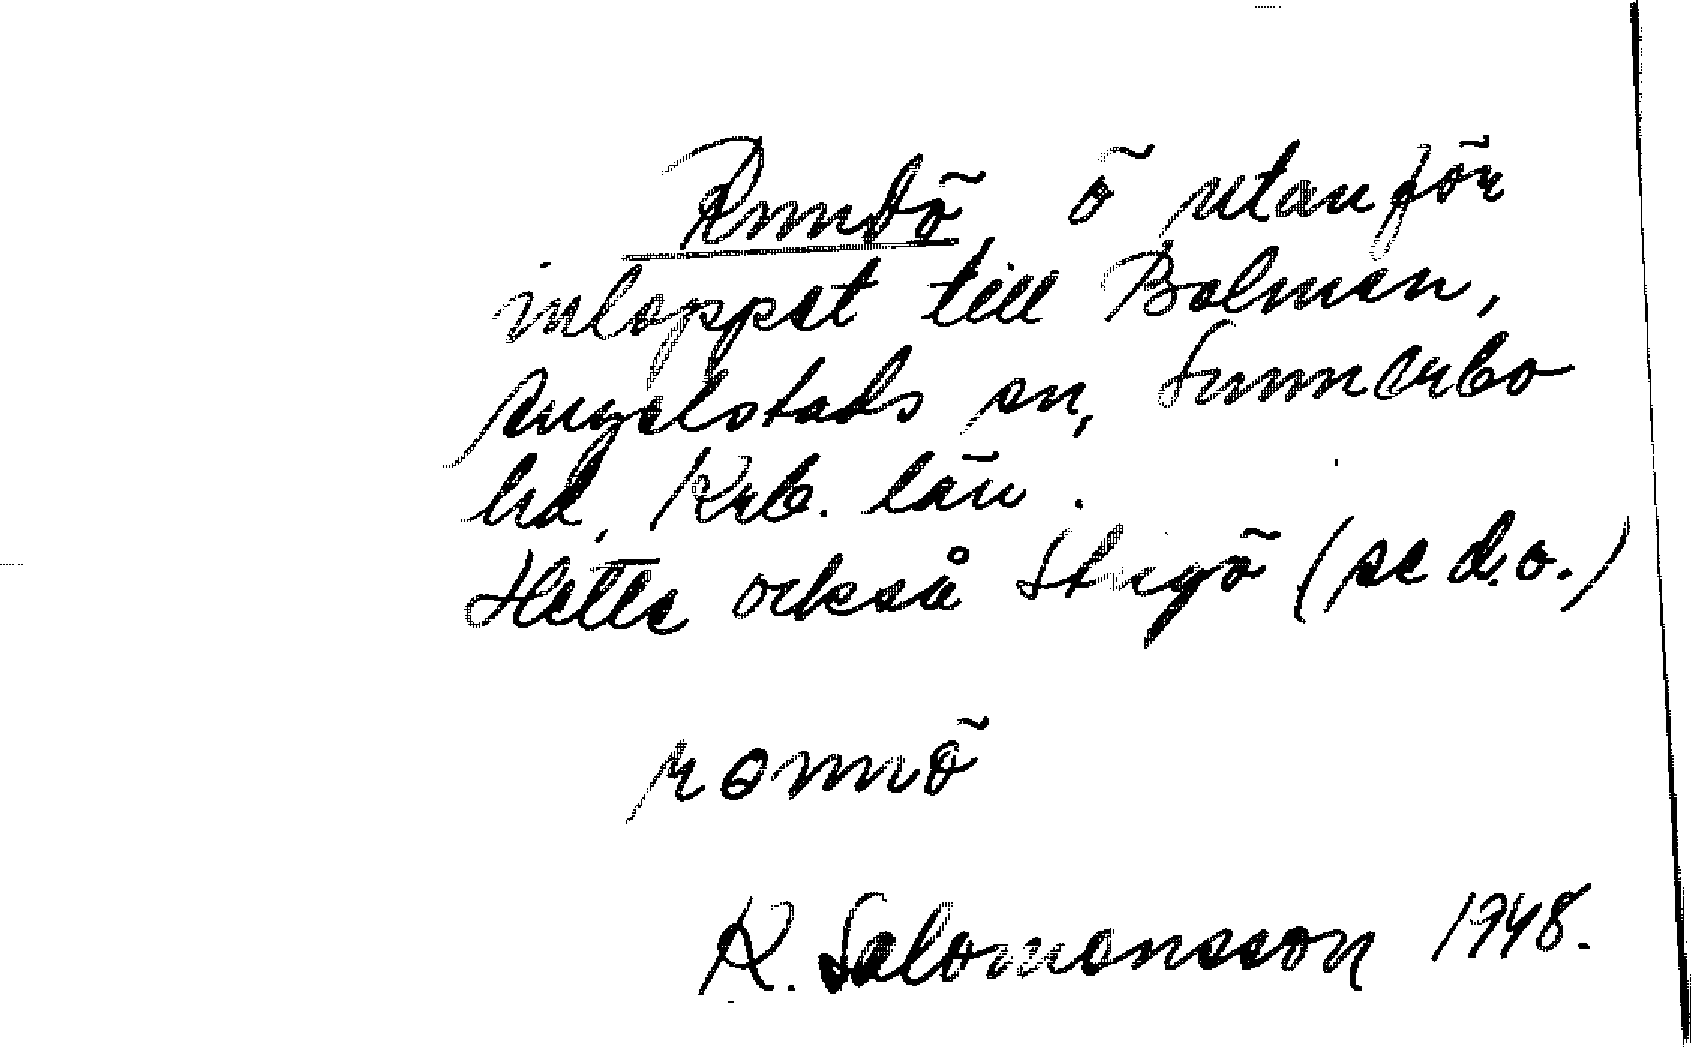 Rundö, ö utanför
inloppet till Bolmen,
Angelstads sn, Sunnerbo
hd, Krb. län.
Hette också Stigö (se d.o.)
ronnö
K. Salomonsson 1948.